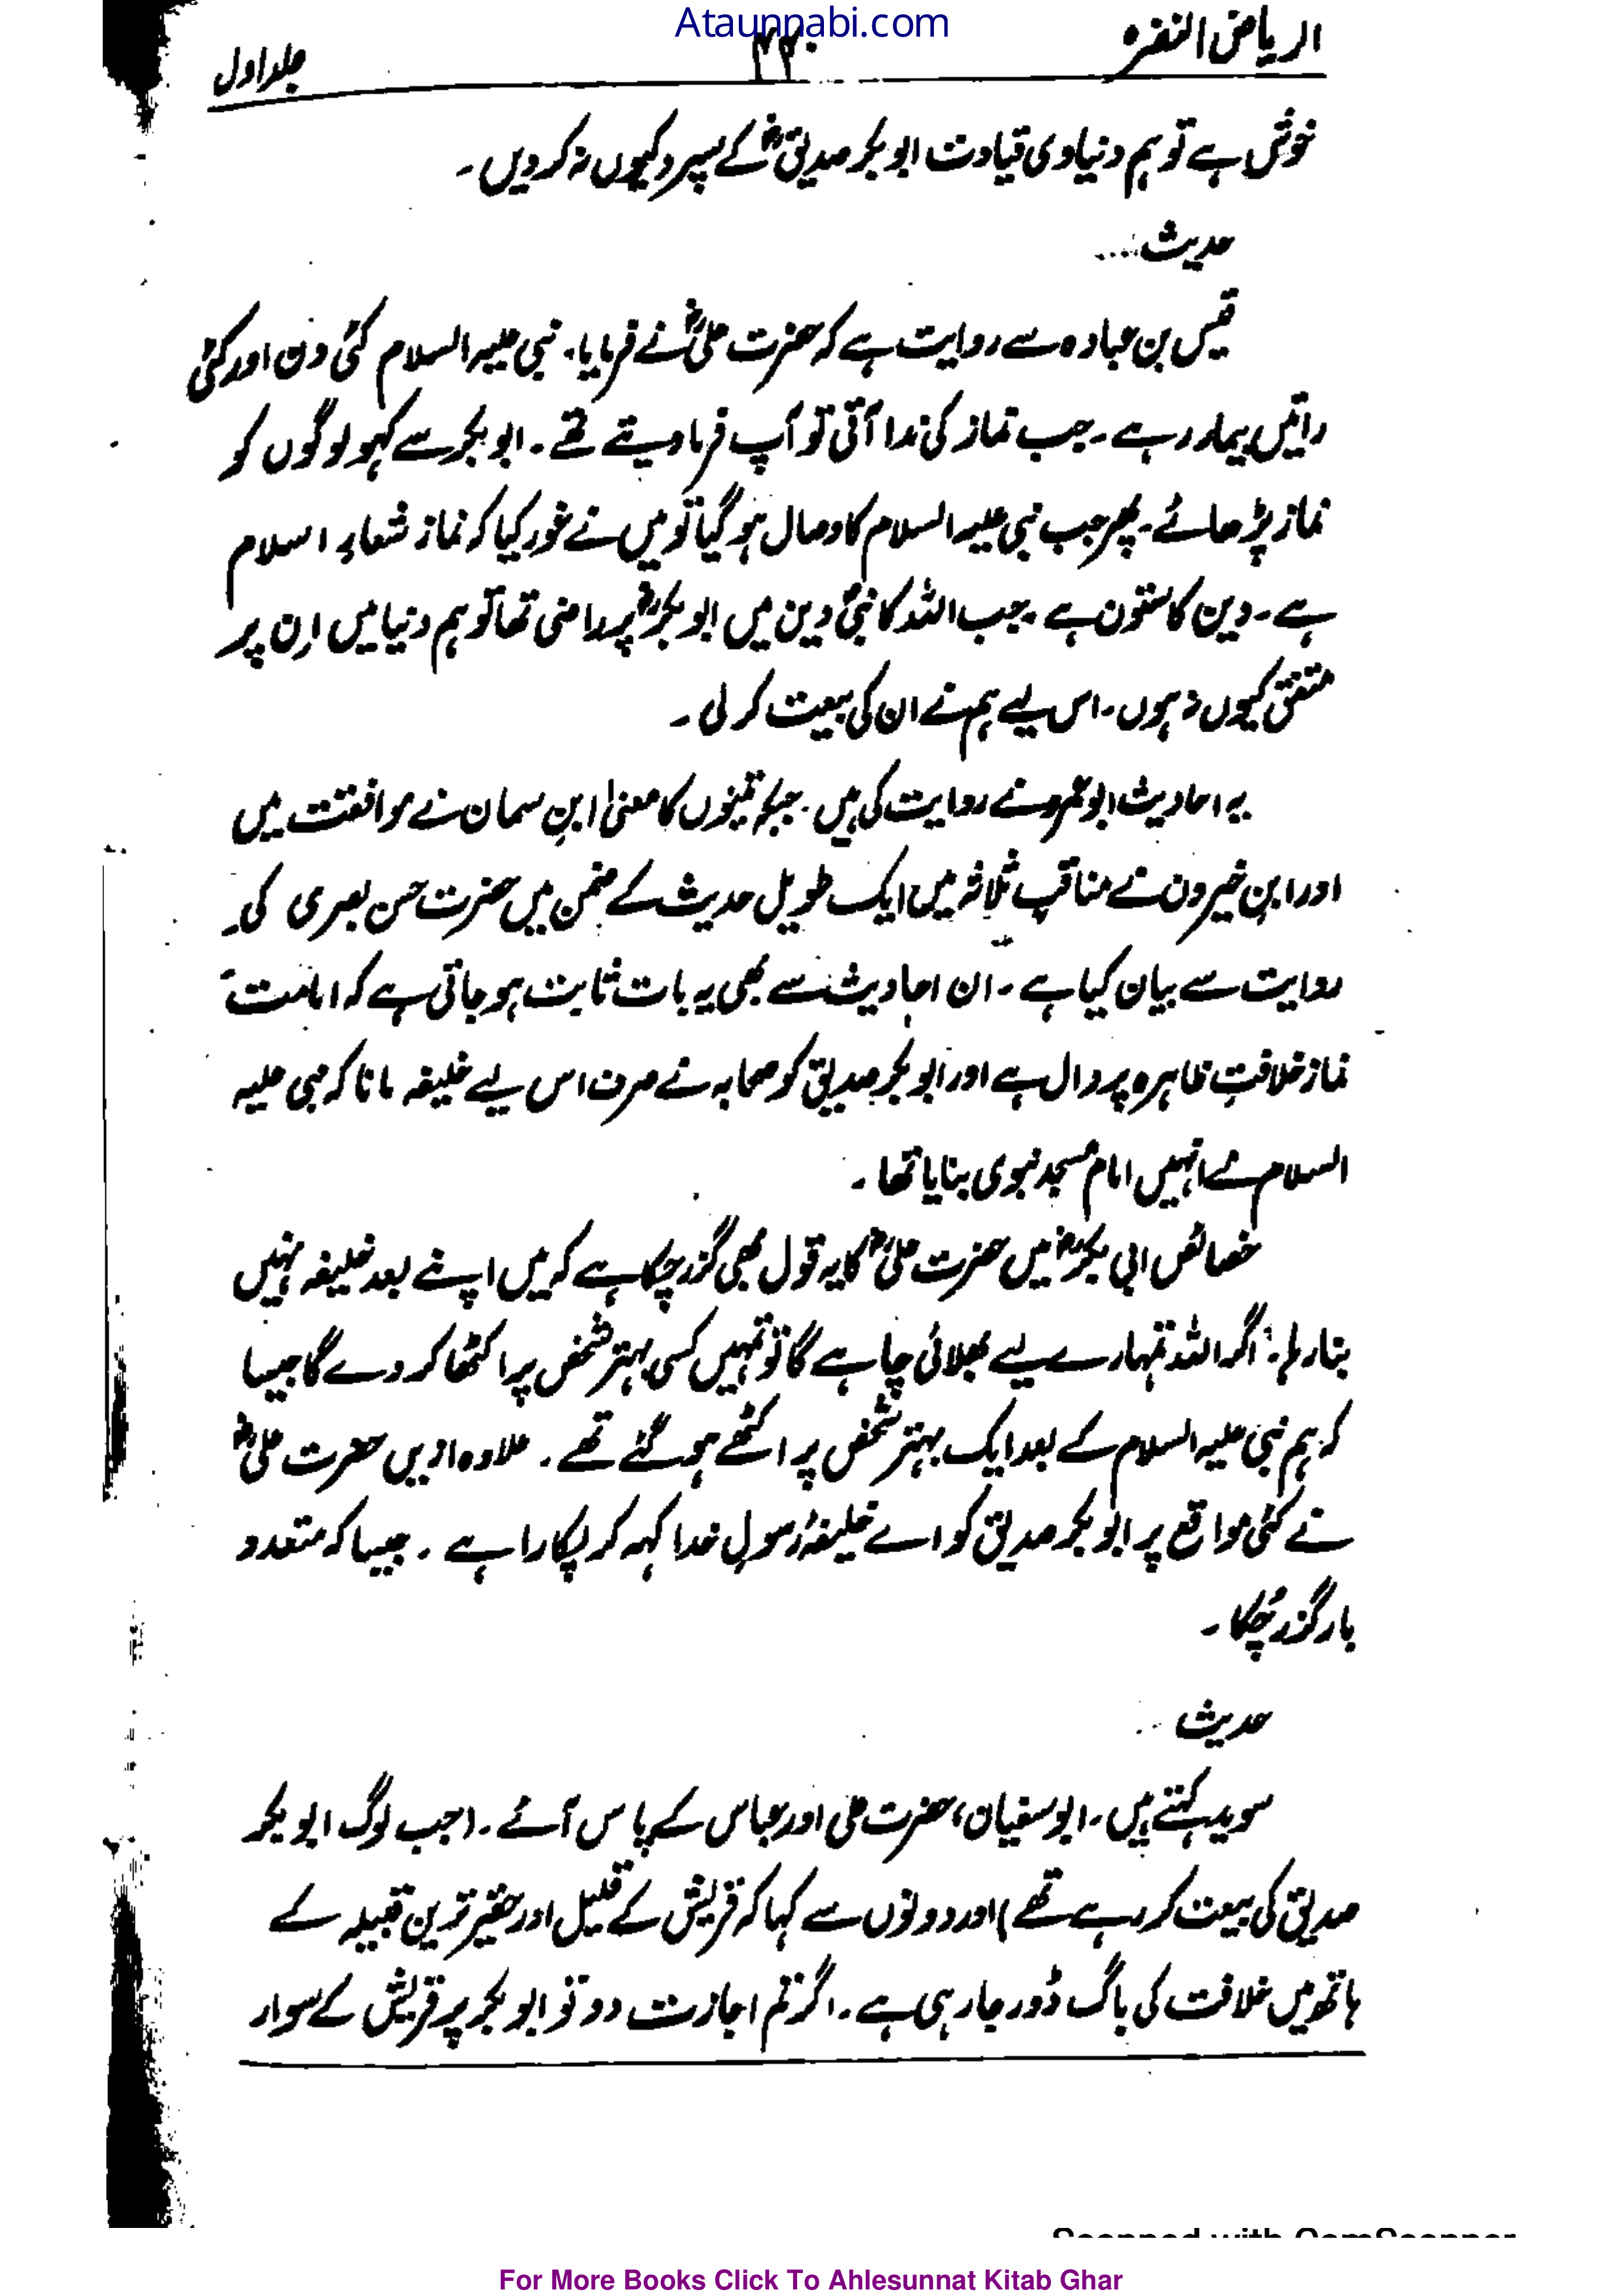 Ataunnabi.com
الریاض النضرہ
۴۴۰
جلد اول
خوش ہے تو ہم دنیاوی قیادت ابوبکر صدیقؓ کے سپرد کیوں نہ کر دیں۔
حدیث....
قیس بن عبادہ سے روایت ہے کہ حضرت علیؓ نے فرمایا۔ نبی علیہ السلام کئی دن اور کئی
راتیں بیمار رہے۔ جب نماز کی ندا آتی تو آپ فرما دیتے تھے۔ ابوبکر سے کہو لوگوں کو
نماز پڑھائے۔ پھر جب نبی علیہ السلام کا وصال ہو گیا تو میں نے غور کیا کہ نماز شعارِ اسلام
ہے۔ دین کا ستون ہے۔ جب اللہ کا نبیؐ دین میں ابوبکرؓ پر راضی تھا تو ہم دنیا میں اِن پر
متفق کیوں نہ ہوں۔ اس لیے ہم نے ان کی بیعت کر لی۔
یہ احادیث ابو عمرو نے روایت کی ہیں۔ جبکہ تینوں کا معنیٰ ابنِ سمان نے موافقت میں
اور ابنِ خیرون نے مناقبِ ثلاثہ میں ایک طویل حدیث کے ضمن میں حضرت حسن بصری کی
روایت سے بیان کیا ہے۔ ان احادیث سے بھی یہ بات ثابت ہو جاتی ہے کہ امامت
نماز خلافتِ ظاہرہ پر دال ہے اور ابوبکر صدیق کو صحابہ نے صرف اس لیے خلیفہ مانا کہ نبی علیہ
السلام نے انہیں امام مسجد نبوی بنایا تھا۔
خصائص ابی بکرؓ میں حضرت علیؓ کا یہ قول بھی گزر چکا ہے کہ میں اپنے بعد خلیفہ نہیں
بنا رہا۔ اگر اللہ تمہارے لیے بھلائی چاہے گا تو تمہیں کسی بہتر شخص پر اکٹھا کر دے گا جیسا
کہ ہم نبی علیہ السلام کے بعد ایک بہتر شخص پر اکٹھے ہو گئے تھے۔ علاوہ ازیں حضرت علیؓ
نے کئی مواقع پر ابوبکر صدیق کو اے خلیفۂ رسولِ خدا کہہ کر پکارا ہے۔ جیسا کہ متعدد
بار گزر چُکا۔
حدیث
سوید کہتے ہیں۔ ابوسفیان، حضرت علی اور عباس کے پاس آئے۔ (جب لوگ ابوبکر
صدیق کی بیعت کر رہے تھے) اور دونوں سے کہا کہ قریش کے قلیل اور حقیر ترین قبیلہ کے
ہاتھ میں خلافت کی باگ ڈور جا رہی ہے۔ اگر تم اجازت دو تو ابوبکر پر قریش کے سوار
Scanned with CamScanner
For More Books Click To Ahlesunnat Kitab Ghar